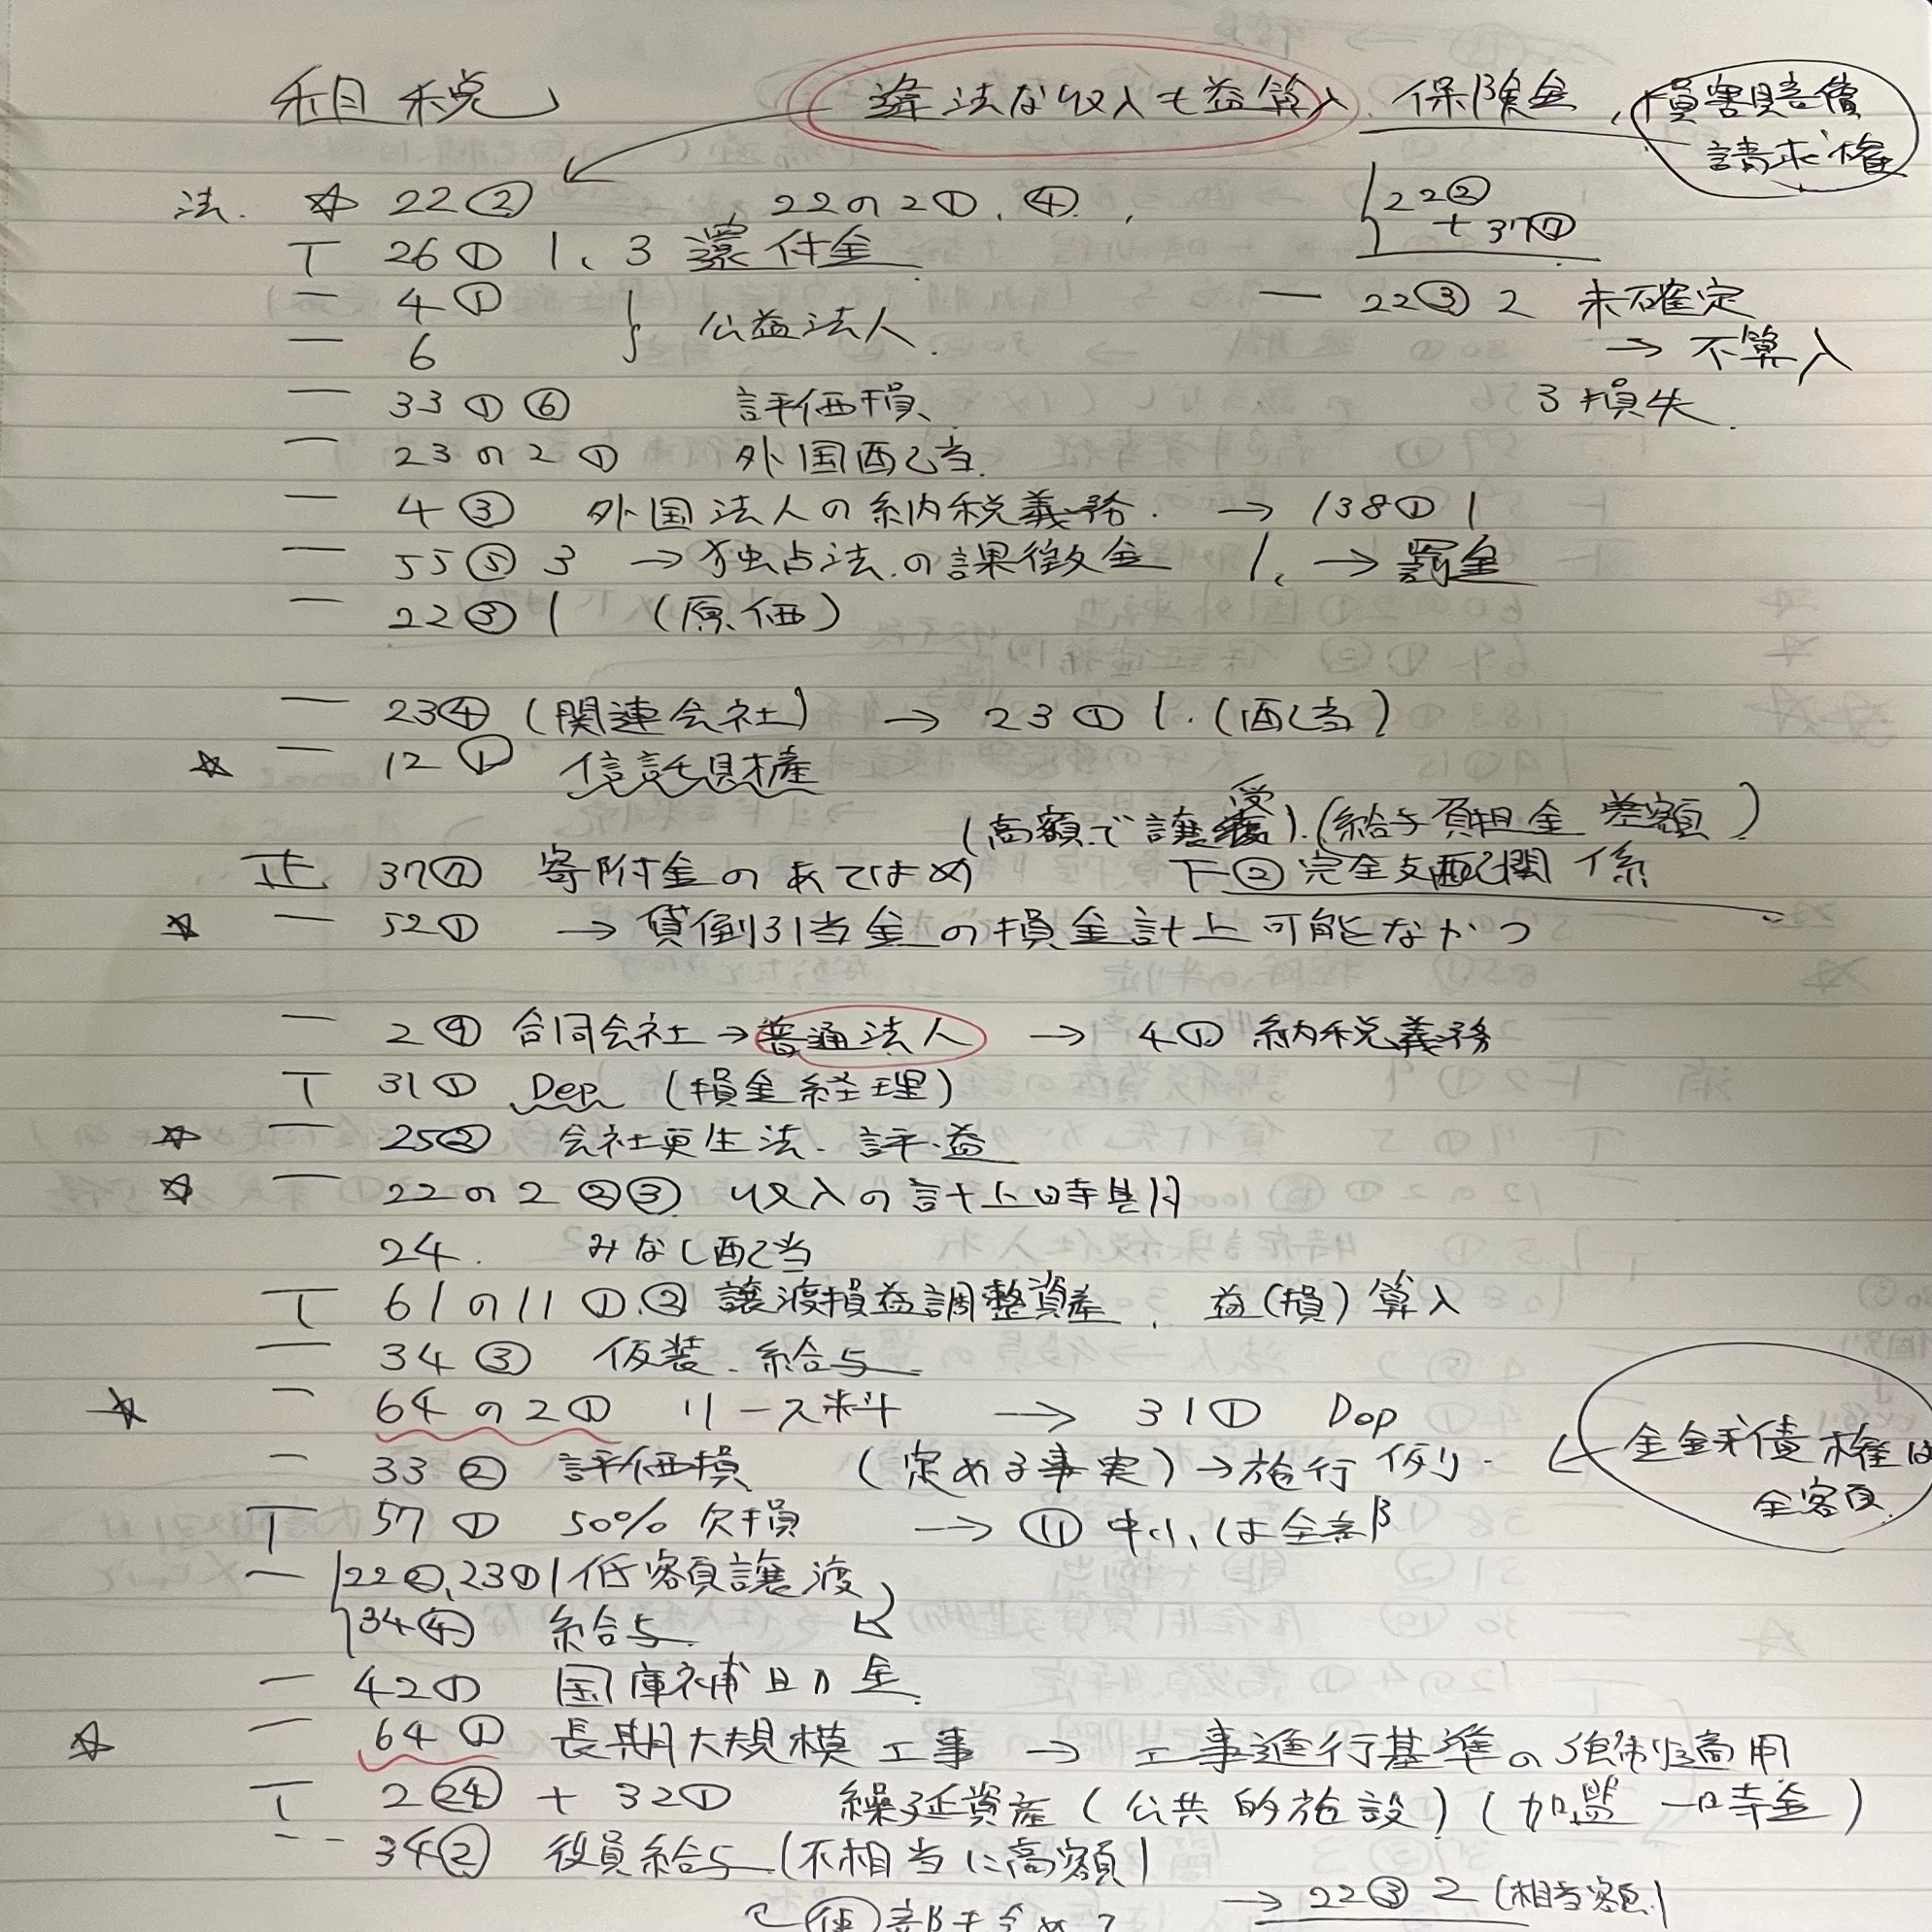 租税
違法な収入も益算入、保険金、損害賠償
請求権
法. ☆ 22② , 22の2①、④,
22②
+ 37⑦
T 26① 1、3 還付金
一 22③ 2 未確定
→ 不算入
3 損失.
一 4①
一 6
公益法人.
一 33①⑥ 評価損、
一 23の2① 外国配当.
一 4③ 外国法人の納税義務. → 138① 1
一 55⑤ 3 → 独占法.の課徴金 1、→ 罰金
一 22③ 1 (原価)
一 23④ (関連会社) → 23① 1. (配当)
☆ 一 12① 信託財産
(高額で譲受). (給与負担金 差額)
正 37⑦ 寄附金のあてはめ T② 完全支配関係
☆ 一 52① → 貸倒引当金の損金計上可能なかつ
一 2⑨ 合同会社 → 普通法人 → 4① 納税義務
T 31① Dep (損金経理)
☆ 一 25② 会社更生法. 評.益
☆ 一 22の2 ②③ 収入の計上時期
24. みなし配当
T 61の11 ①.② 譲渡損益調整資産, 益(損)算入
一 34③ 仮装、給与
☆ 一 64の2① リース料 → 31① Dep
一 33② 評価損 (定める事実) → 施行例.
← 金銭債権は
全容頁.
T 57① 50% 欠損 → ⑪ 中小は全部
一 22②,23① 1 低額譲渡
34④ 給与.
一 42① 国庫補助金.
☆ 一 64① 長期大規模工事 → 工事進行基準の強制適用
T 2㉔ + 32① 繰延資産 (公共的施設) (加盟一時金)
一 34② 役員給与 (不相当に高額)
→ 22③ 2 (相当額)